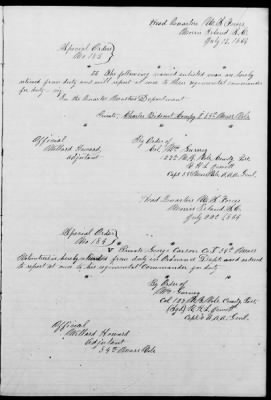 Head Quarters U.S. Forces
Morris Island S.C.
July 1864
Special Orders
No 183
II The following named enlisted men are hereby
relieved from duty and will report at once to their regimental commander
for duty
In the Quarter Masters Department
Private Charles Company 54th Mass Vols
Official
Willard Howard,
Adjutant
By Order of
Col Wm Gurney
127 N.Y. Vols Comdg Post
R. H. L. Jewett
Capt 54th Mass Vols A.A.A. Genl.
Head Quarters U.S. Forces
Morris Island, S.C.
July 22d 1864
Special Orders
No 184
V Private George Carson Co. 54th Mass
Volunteers is hereby relieved from duty in Ordnance Dept and ordered
to report at once to his regimental Commander for duty
By Order of
Wm Gurney
Col 127 N.Y. Vols Comdg Post
R. H. L. Jewett
Capt & A.A.A. Genl.
Official
Willard Howard
Adjutant
54th Mass Vols